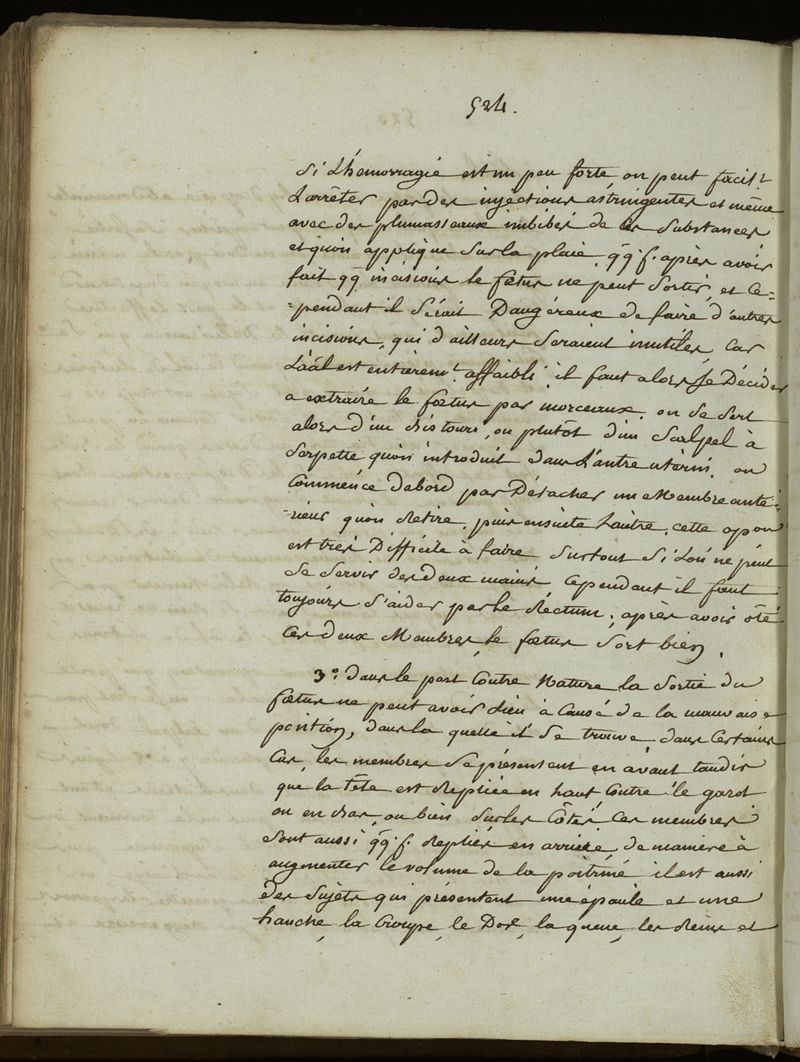 524.
Si L'hemorragie est un peu forte on peut facil.t
L'arrêter par des injections astringentes et même
avec des plumasseaux imbibés de ces Substances
et qu'on applique Sur la plaie. qq. f. après avoir
fait qq incisions le fœtus ne peut Sortir, et Ce=
=pendant il Sérait Dangéreux de faire d'autres
incisions, qui d'ailleurs Seraient inutiles, Car
L'aâl est entièrem.t affaibli; il faut alors Se Décider
a extraire le fœtus par morceaux. on Se Sert
alors d'un bistouri, ou plutôt d'un Scalpel à
Serpette qu'on introduit dans L'antre utérin. on
Commence d'abord par Détacher un Membre anté=
=rieur qu'on Retire, puis ensuite L'autre, cette opon
est très Difficile à faire Surtout Si L'on ne peut
Se Servir des deux mains Cependant il faut
toujours S'aider par le Rectum; après avoir ôté
Ces deux Membres, le fœtus Sort bien.
3.° dans le part Contre Nature la Sortie du
fœtus ne peut avoir Lieu à Cause de la mauvaise
position, dans la quelle il Se trouve, dans Certains
Cas, les membres Se présentent en avant tandis
que la tête est Repliée en haut Contre le garot
ou en bas, ou bien Sur les Côtés, Ces membres
Sont aussi qq. f. Repliés en arrière de maniere à
augmenter le volume de la poitrine il est aussi
Des Sujets qui présentent une épaule et une
hanche, la Croupe, le Dos, la queue, les Reins et